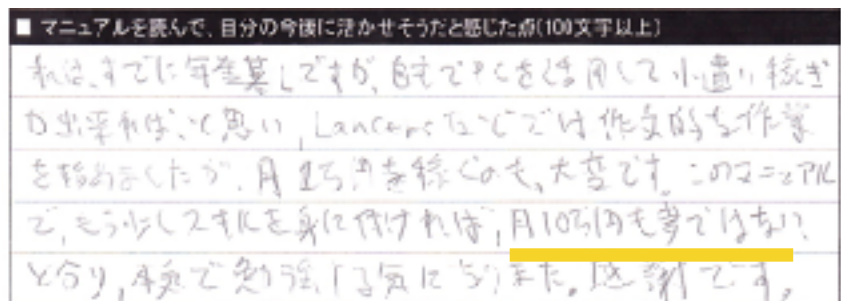 ■ マニュアルを読んで、自分の今後に活かせそうだと感じた点(100文字以上)
私は、すでに年金暮しですが、自宅でPCを活用して小遣い稼ぎ
が出来れば、と思い、Lancersなどでは作文的な作業
を始めましたが、月1万円を稼ぐのも、大変です。このマニュアル
で、もう少しスキルを身に付ければ、月10万円も夢ではない、
となり、本気で勉強する気になりました。感謝です。